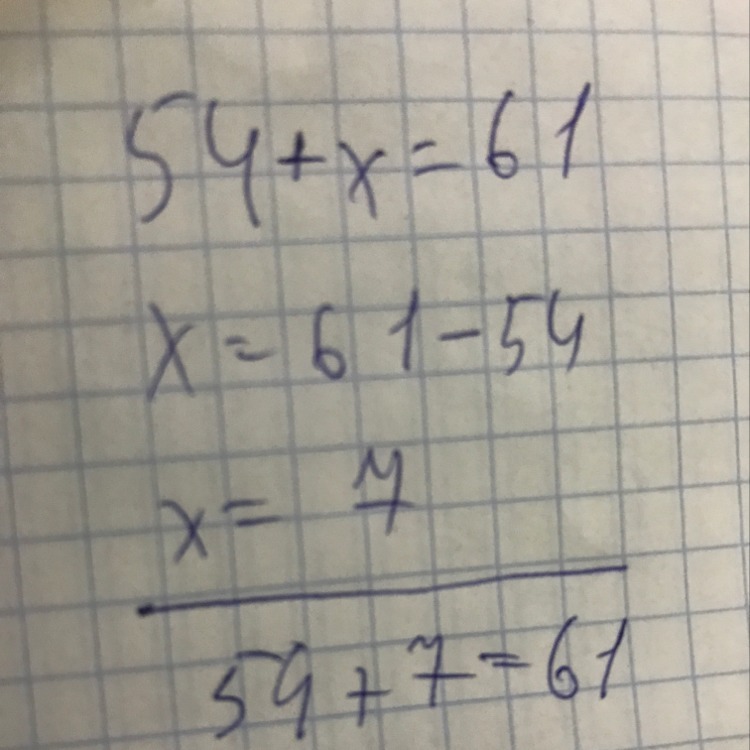 54+x=61
x=61-54
x=7
54+7=61